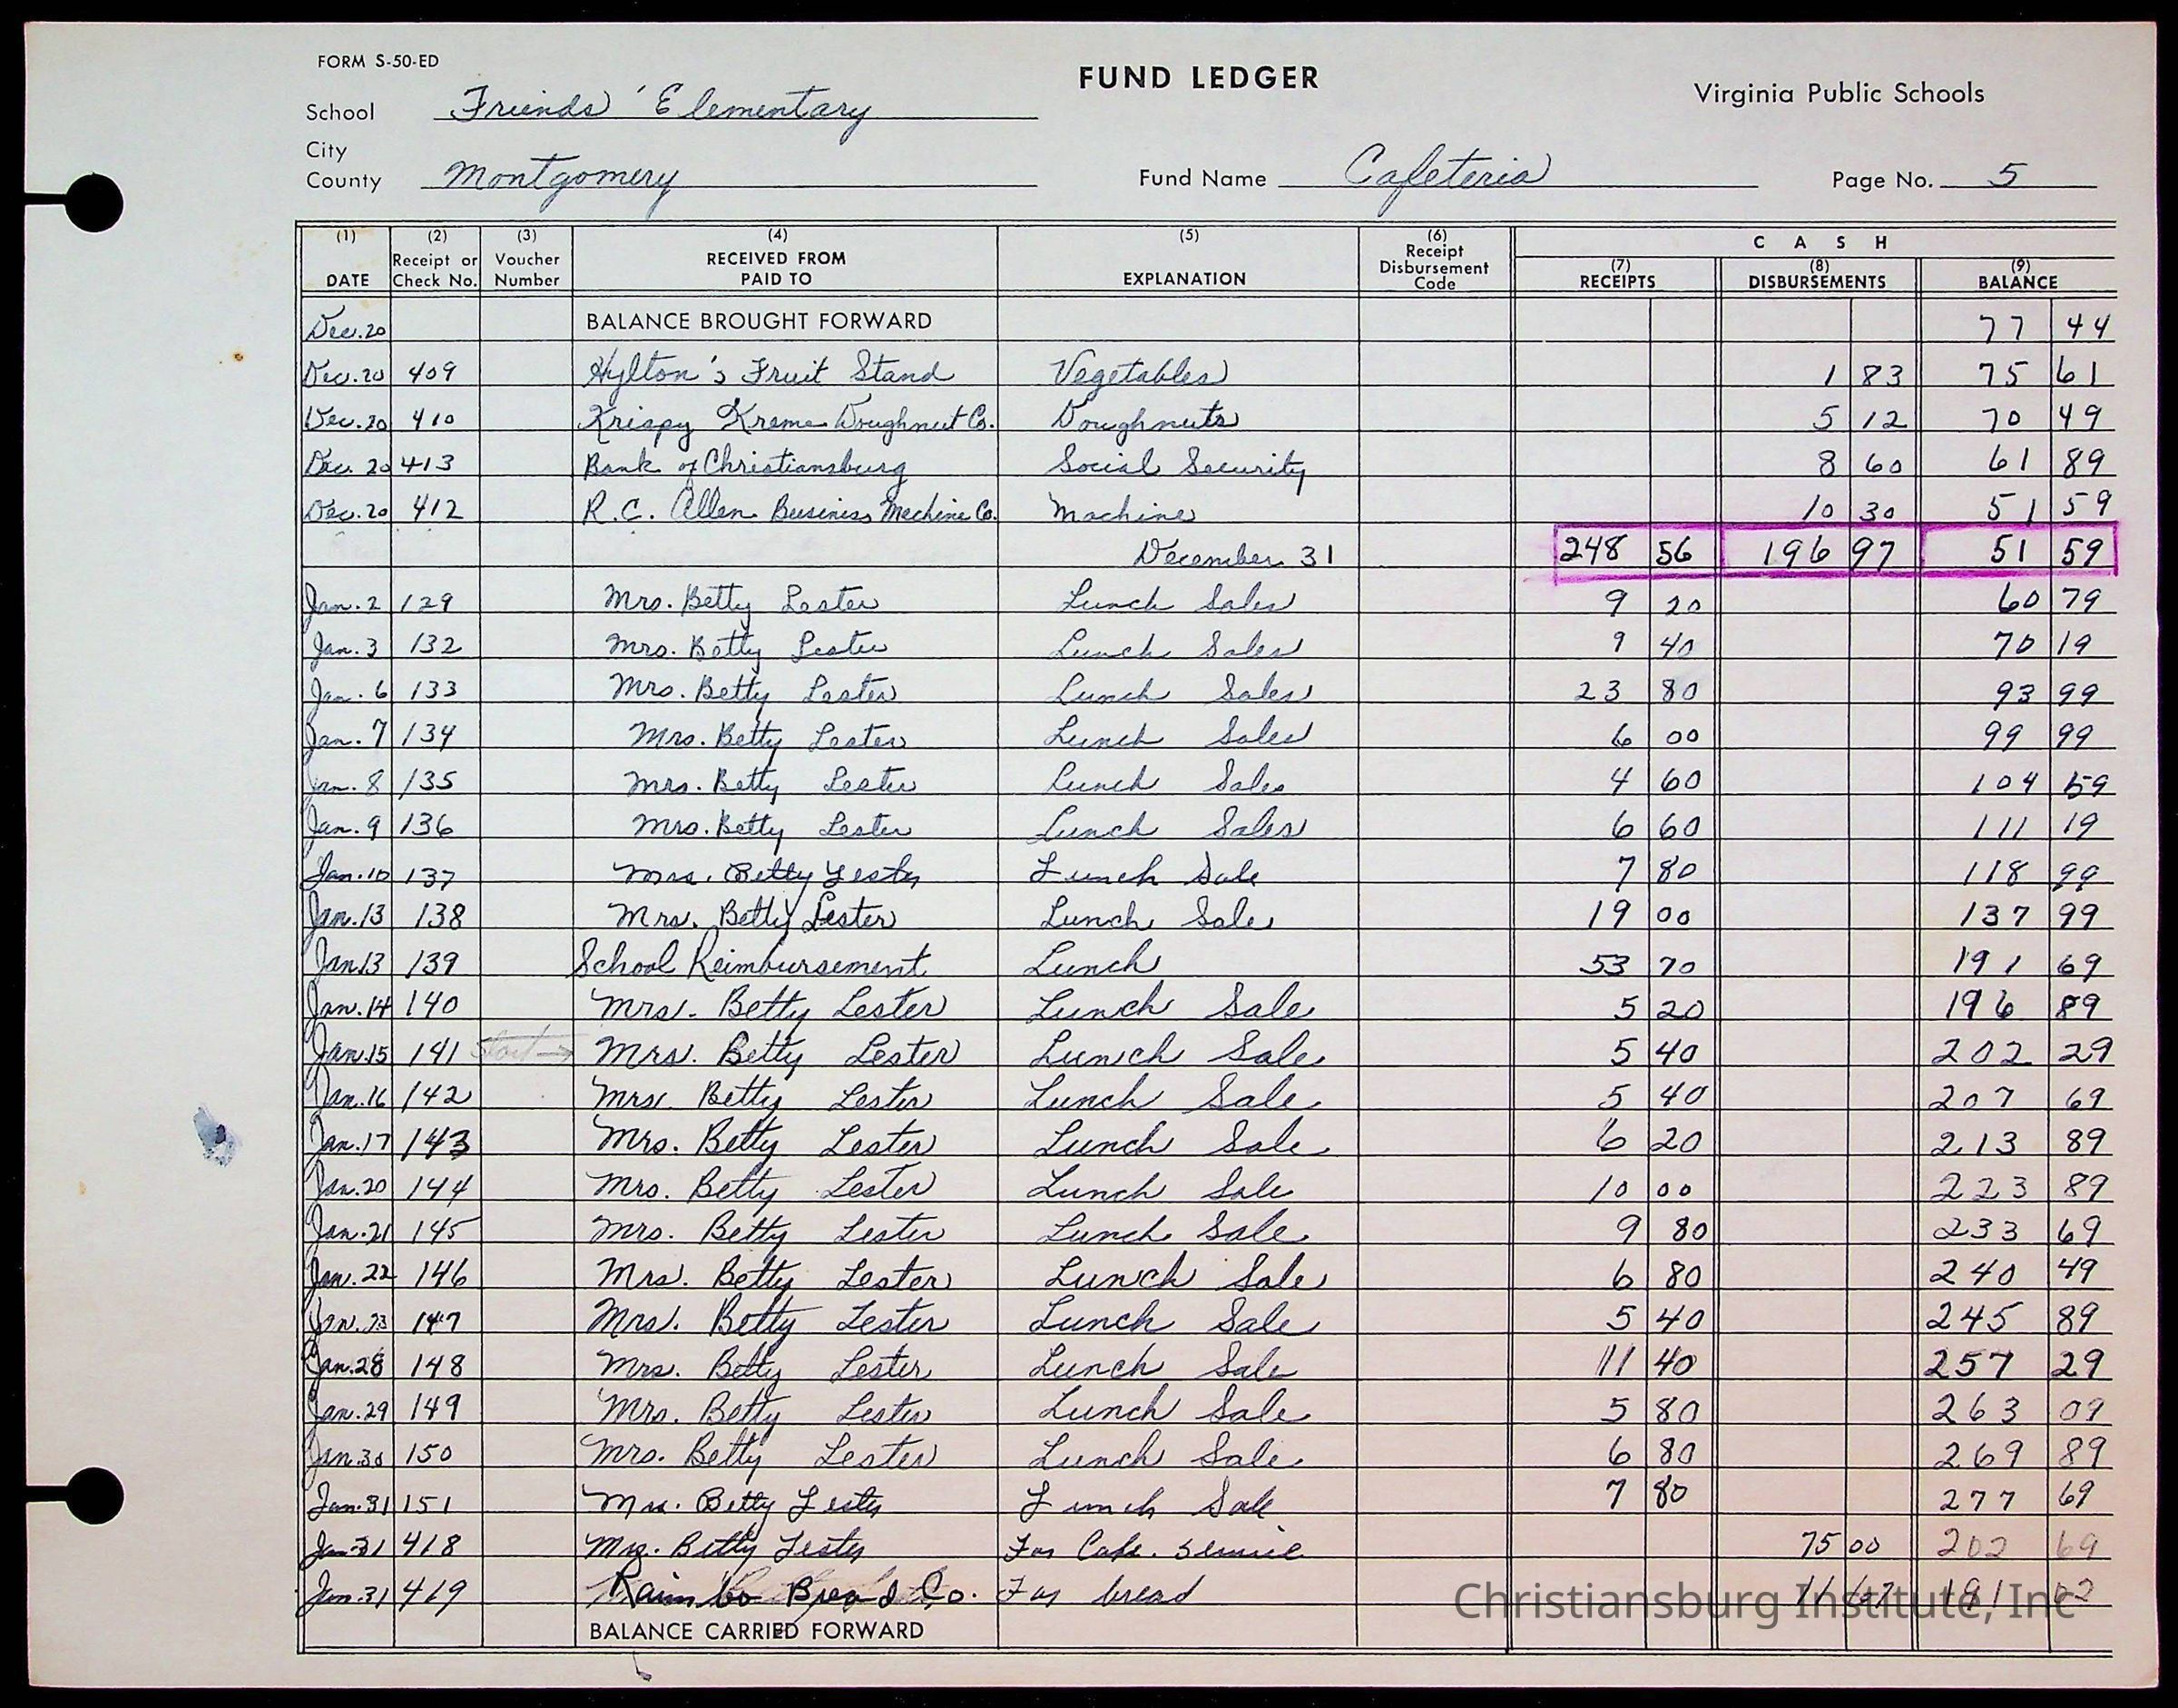 FORM S-50-ED
FUND LEDGER
Virginia Public Schools
School Friends' Elementary
City
County Montgomery Fund Name Cafeteria Page No. 5
(1) DATE (2) Receipt or Check No. (3) Voucher Number (4) RECEIVED FROM PAID TO (5) EXPLANATION (6) Receipt Disbursement Code CASH (7) RECEIPTS (8) DISBURSEMENTS (9) BALANCE
Dec. 20 BALANCE BROUGHT FORWARD 77 44
Dec. 20 409 Hylton's Fruit Stand Vegetables 1 83 75 61
Dec. 20 410 Krispy Kreme Doughnut Co. Doughnuts 5 12 70 49
Dec. 20 413 Bank of Christiansburg Social Security 8 60 61 89
Dec. 20 412 R.C. Allen Business Mechine Co. Machine 10 30 51 59
December 31 248 56 196 97 51 59
Jan. 2 129 Mrs. Betty Lester Lunch Sales 9 20 60 79
Jan. 3 132 Mrs. Betty Lester Lunch Sales 9 40 70 19
Jan. 6 133 Mrs. Betty Lester Lunch Sales 23 80 93 99
Jan. 7 134 Mrs. Betty Lester Lunch Sales 6 00 99 99
Jan. 8 135 Mrs. Betty Lester Lunch Sales 4 60 104 59
Jan. 9 136 Mrs. Betty Lester Lunch Sales 6 60 111 19
Jan. 10 137 Mrs. Betty Lester Lunch Sale 7 80 118 99
Jan. 13 138 Mrs. Betty Lester Lunch Sales 19 00 137 99
Jan 13 139 School Reimbursement Lunch 53 70 191 69
Jan. 14 140 Mrs. Betty Lester Lunch Sale 5 20 196 89
Jan. 15 141 Start → Mrs. Betty Lester Lunch Sale 5 40 202 29
Jan. 16 142 Mrs. Betty Lester Lunch Sale 5 40 207 69
Jan. 17 143 Mrs. Betty Lester Lunch Sale 6 20 213 89
Jan. 20 144 Mrs. Betty Lester Lunch Sale 10 00 223 89
Jan. 21 145 Mrs. Betty Lester Lunch Sale 9 80 233 69
Jan. 22 146 Mrs. Betty Lester Lunch Sale 6 80 240 49
Jan. 23 147 Mrs. Betty Lester Lunch Sale 5 40 245 89
Jan. 28 148 Mrs. Betty Lester Lunch Sale 11 40 257 29
Jan. 29 149 Mrs. Betty Lester Lunch Sale 5 80 263 09
Jan. 30 150 Mrs. Betty Lester Lunch Sale 6 80 269 89
Jan. 31 151 Mrs. Betty Lester Lunch Sale 7 80 277 69
Jan 31 418 Mrs. Betty Lester For Cafe. Service 75 00 202 69
Jan. 31 419 Rainbo Bread Co. For bread 11 67 191 02
Christiansburg Institute, Inc
BALANCE CARRIED FORWARD